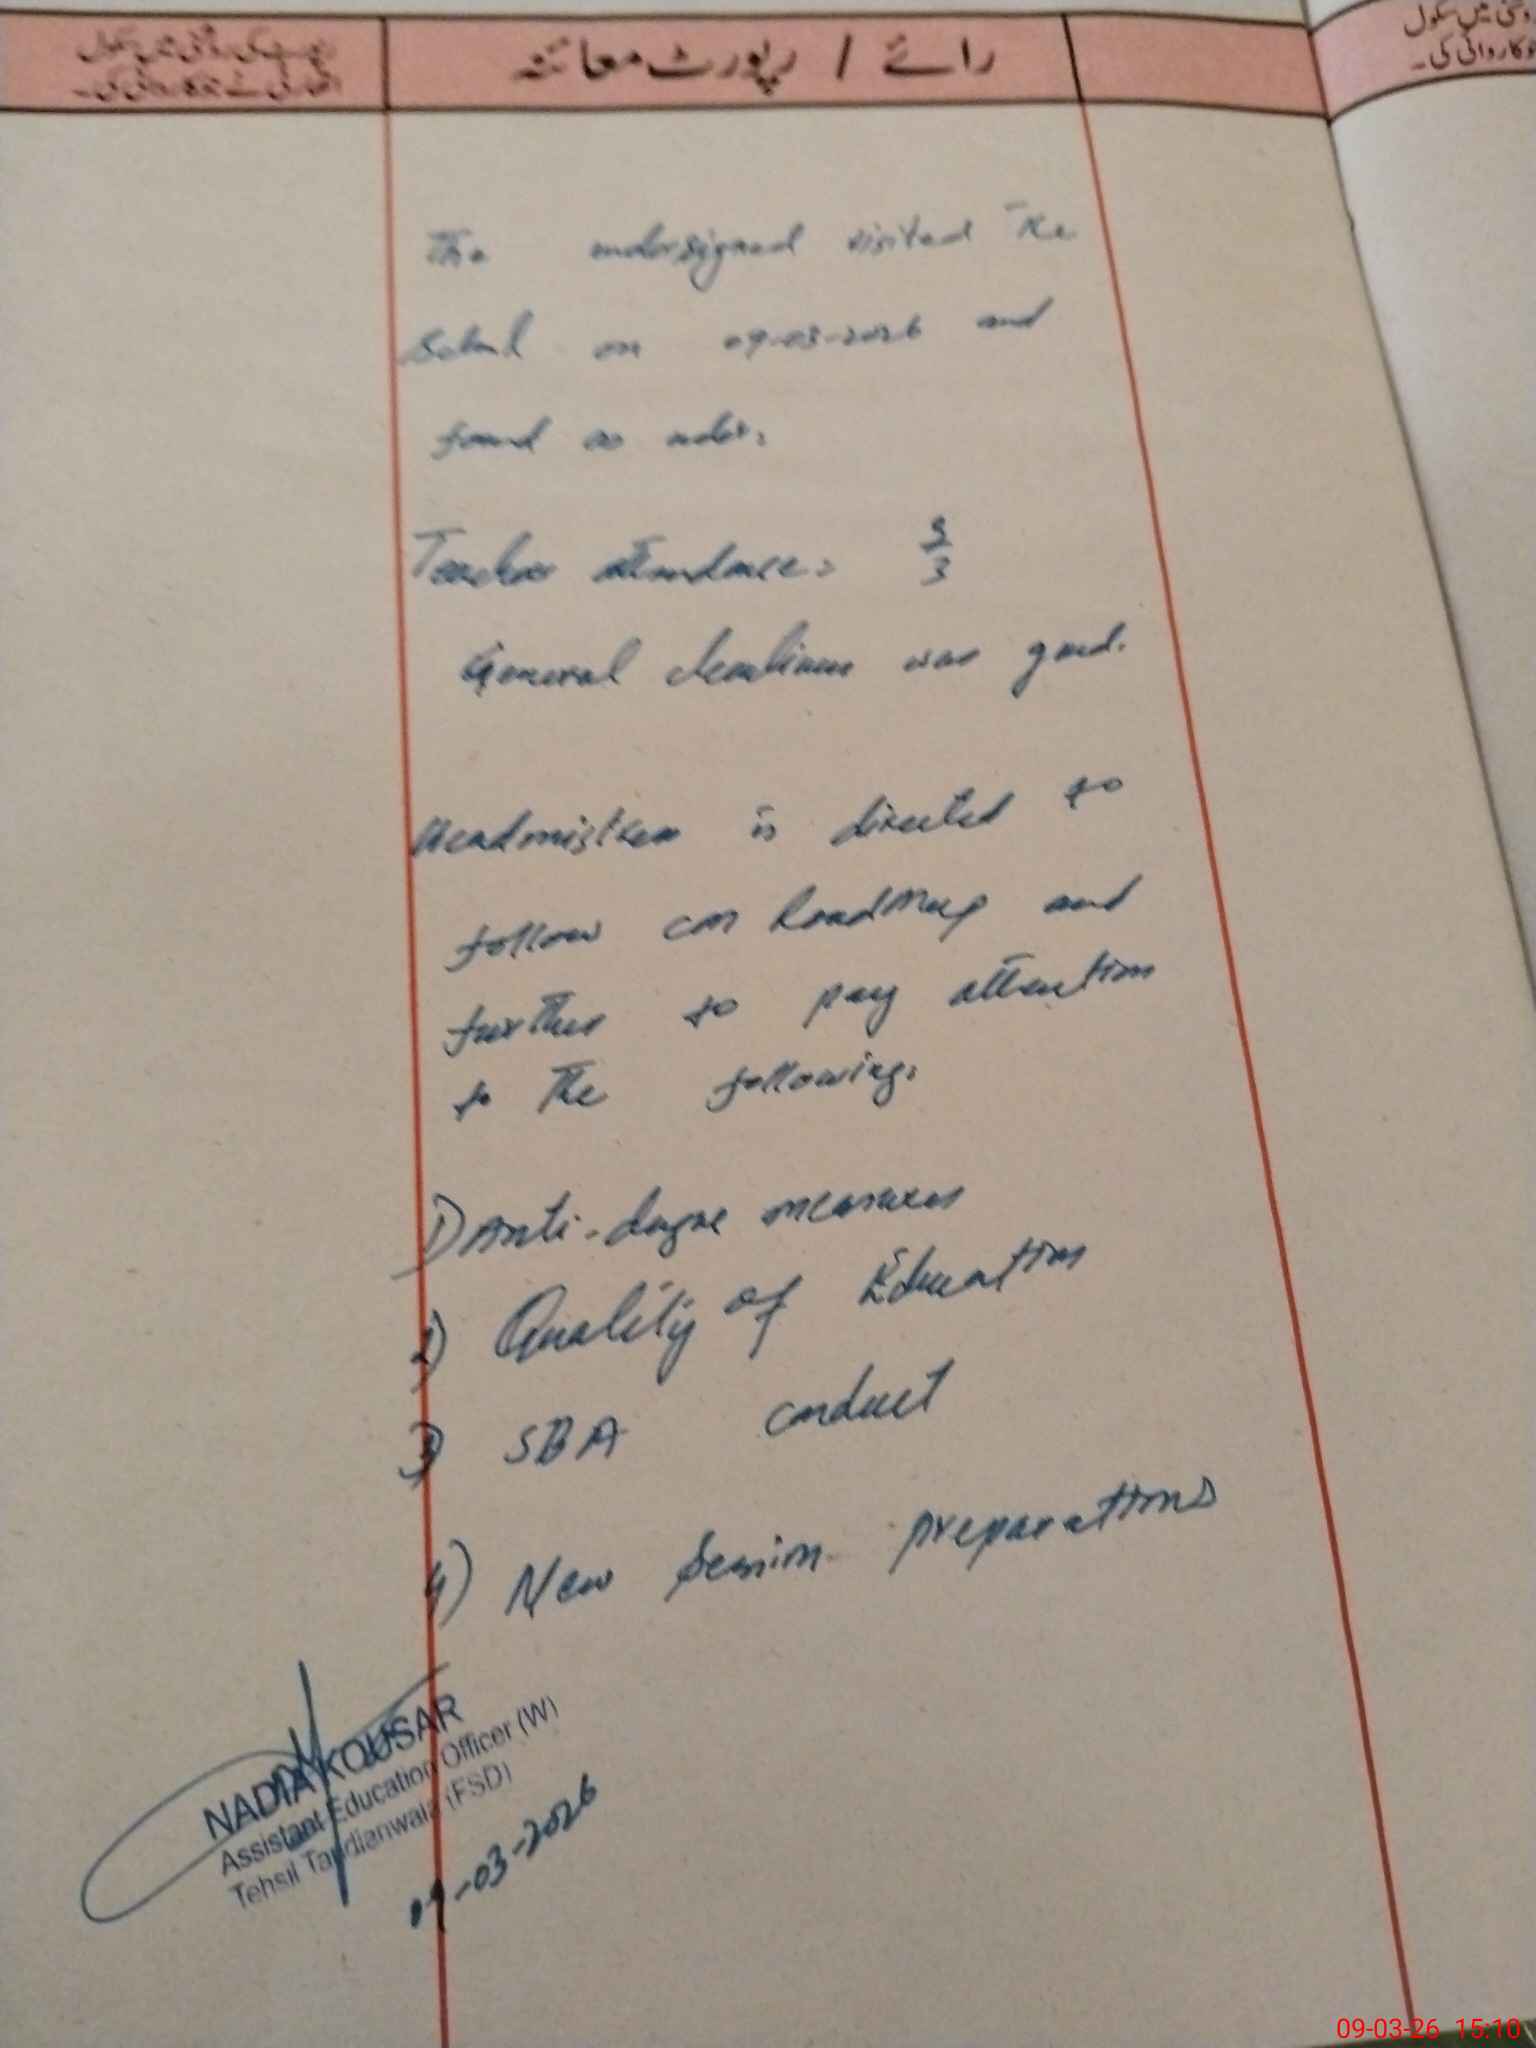 رپورٹ کی روشنی میں سکول
اتھارٹی نے جو کاروائی کی۔
رائے / رپورٹ معائنہ
روشنی میں سکول
جو کاروائی کی۔
The undersigned visited the
School on 09-03-2026 and
found as under:
Teacher attendance:
3
General cleanliness was good.
Headmistress is directed to
follow CM RoadMap and
further to pay attention
to the following:
1) Anti-dengue measures
2) Quality of Education
3) SBA conduct
4) New Session preparations
NADIA KOUSAR
Assistant Education Officer (W)
Tehsil Tandianwala (FSD)
09-03-2026
09-03-26 15:10